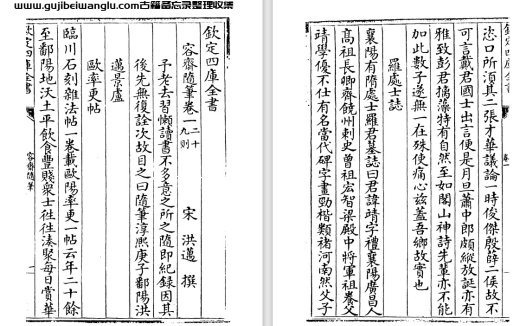 www.gujibeiwanglu.com古籍备忘录整理收集
欽定四庫全書
容齋隨筆卷一 二十九則
宋 洪邁 撰
予老去習懶讀書不多意之所之隨即紀錄因其
後先無復詮次故目之曰隨筆淳熙庚子鄱陽洪
邁景盧
歐率更帖
臨川石刻雜法帖一卷載歐陽率更一帖云年二十餘
至鄱陽地沃土平飲食豐賤衆士往往湊聚每日賞華
欽定四庫全書
容齋隨筆
欽定四庫全書
恣口所須其二張才華議論一時俊傑殷薛二侯故不
可言戴君國士出言便是月旦蕭中郎頗縱放誕亦有
雅致彭君摛藻特有自然至如閣山神詩先輩亦不能
加此數子遂無一在殊使痛心兹蓋吾鄉故實也
羅處士誌
襄陽有隋處士羅君墓誌曰君諱靖字禮襄陽廣昌人
高祖長卿齊饒州刺史曾祖宏智梁殿中將軍祖養父
靖學優不仕有名當代碑字畫勁楷類褚河南然父子